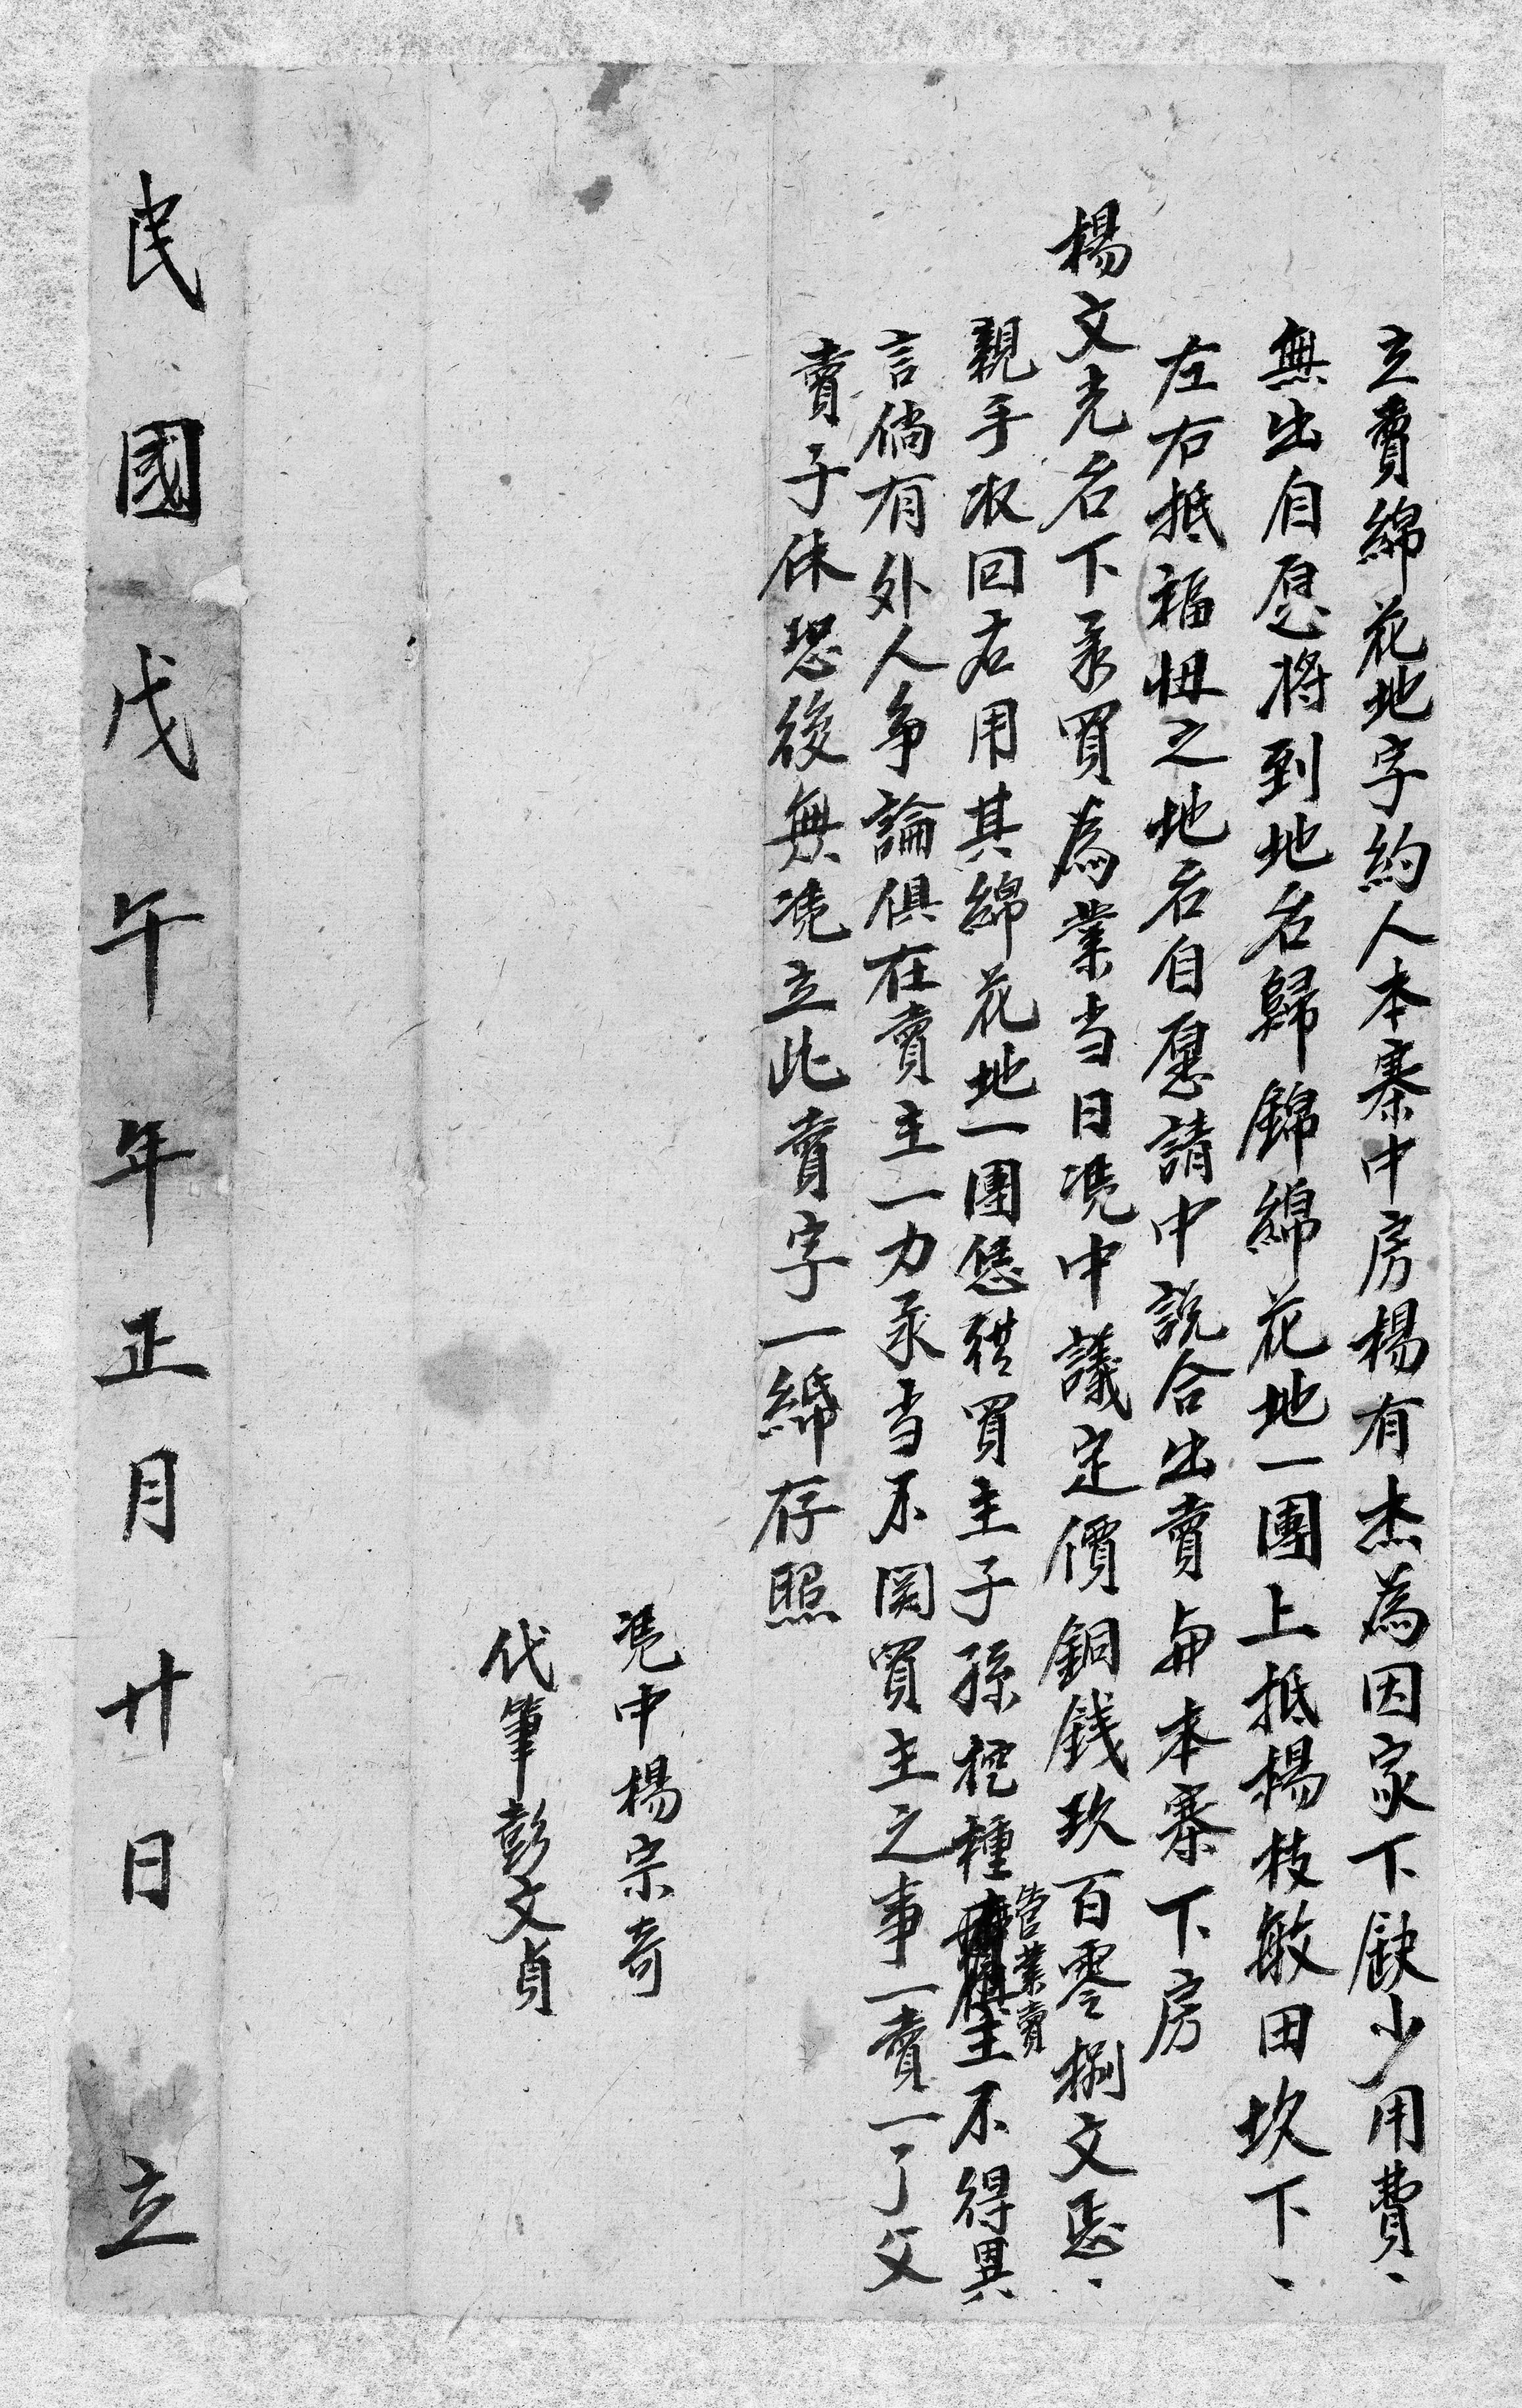 立賣綿花地字約人本寨中房楊有杰為因家下缺少用費、
無出自愿将到地名歸錦綿花地一團上抵楊枝敏田坎下、
左右抵福忸之地名自愿請中説合出賣與本寨下房
楊文光名下承買為業当日凴中議定價銅钱玖百零捌文恁、
親手收回应用其綿花地一團恁從買主子孫挖種管業賣主不得異
言倘有外人争論俱在賣主一力承当不関買主之事一賣一了父
賣子休恐後無凴立此賣字一紙存照
凴中楊宗奇
代筆彭文貞
民國戊午年正月廿日立